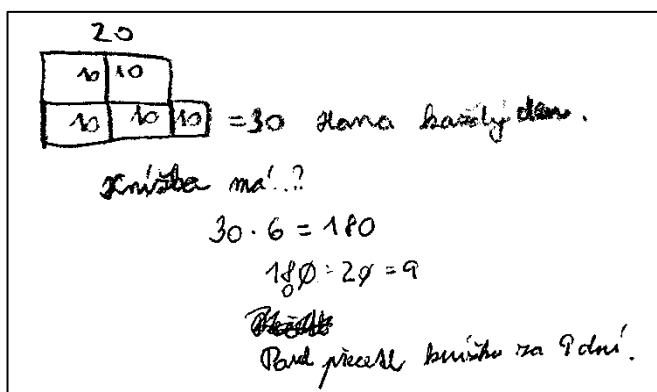 20
10 10
10 10 10 = 30 Hana každý den.
Knížka má..?
30 · 6 = 180
180 : 20 = 9
0
Pavel přečetl knížku za 9 dní.